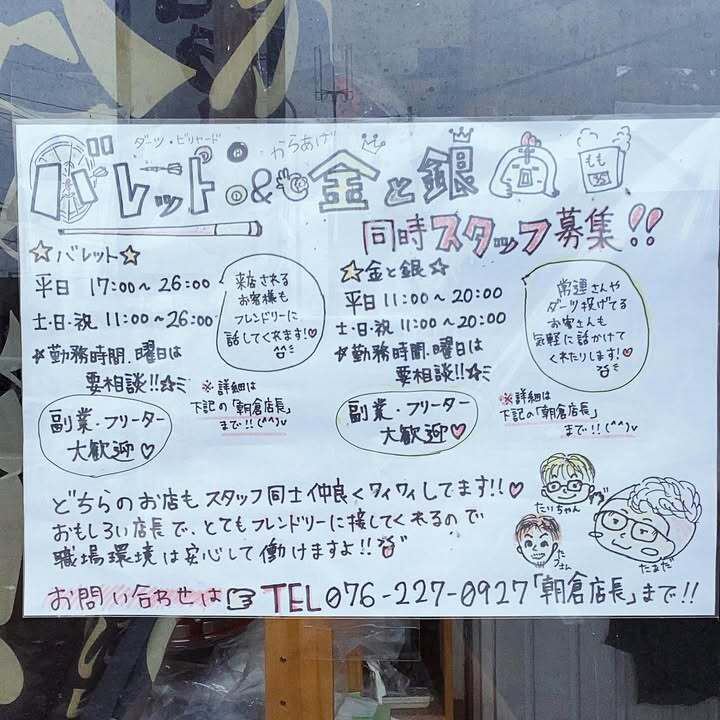 ダーツ・ビリヤード
からあげ
バレット&金と銀
もも
同時スタッフ募集!!
☆バレット☆
平日 17:00~26:00
土・日・祝 11:00~26:00
勤務時間、曜日は
要相談!!☆ミ
来店される
お客様も
フレンドリーに
話してくれます!♡
副業・フリーター
大歓迎♡
※詳細は
下記の「朝倉店長」
まで!!(^^)v
☆金と銀☆
平日 11:00~20:00
土・日・祝 11:00~20:00
勤務時間、曜日は
要相談!!☆ミ
常連さんや
ダーツ投げてる
お客さんも
気軽に話かけて
くれたりします!♡
副業・フリーター
大歓迎♡
※詳細は
下記の「朝倉店長」
まで!!(^^)v
どちらのお店もスタッフ同士仲良くワイワイしてます!!♡
おもしろい店長で、とてもフレンドリーに接してくれるので
職場環境は安心して働けますよ!!
たいちゃん
たまだ
お問い合わせは☞TEL076-227-0927「朝倉店長」まで!!